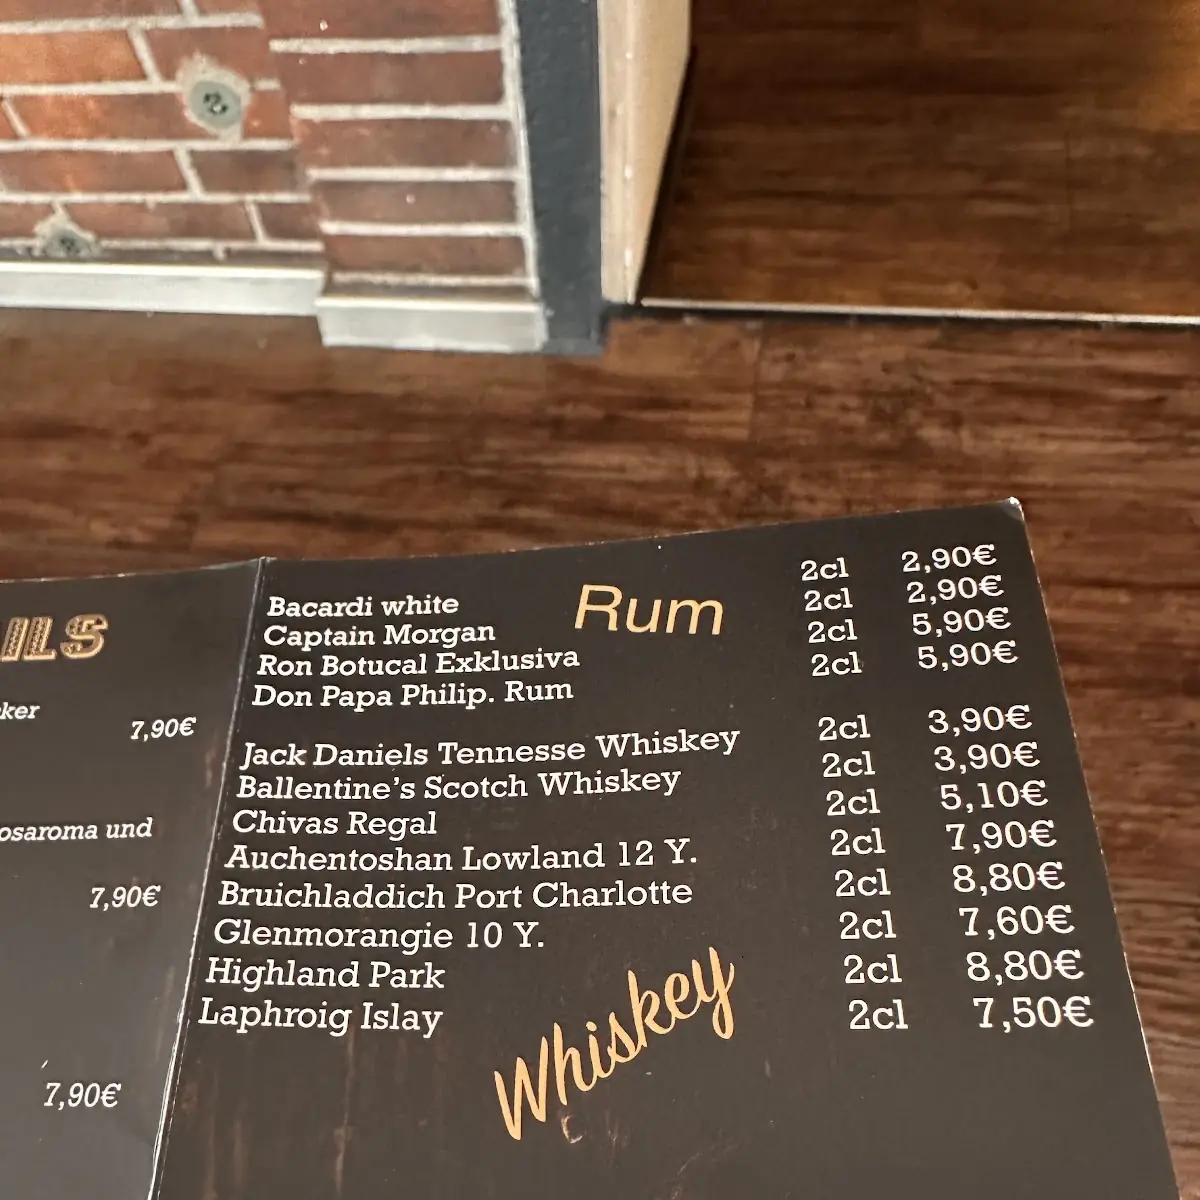 ILS
ker
7,90€
osaroma und
7,90€
7,90€
Rum
Bacardi white 2cl 2,90€
Captain Morgan 2cl 2,90€
Ron Botucal Exklusiva 2cl 5,90€
Don Papa Philip. Rum 2cl 5,90€
Jack Daniels Tennesse Whiskey 2cl 3,90€
Ballentine's Scotch Whiskey 2cl 3,90€
Chivas Regal 2cl 5,10€
Auchentoshan Lowland 12 Y. 2cl 7,90€
Bruichladdich Port Charlotte 2cl 8,80€
Glenmorangie 10 Y. 2cl 7,60€
Highland Park 2cl 8,80€
Laphroig Islay 2cl 7,50€
Whiskey